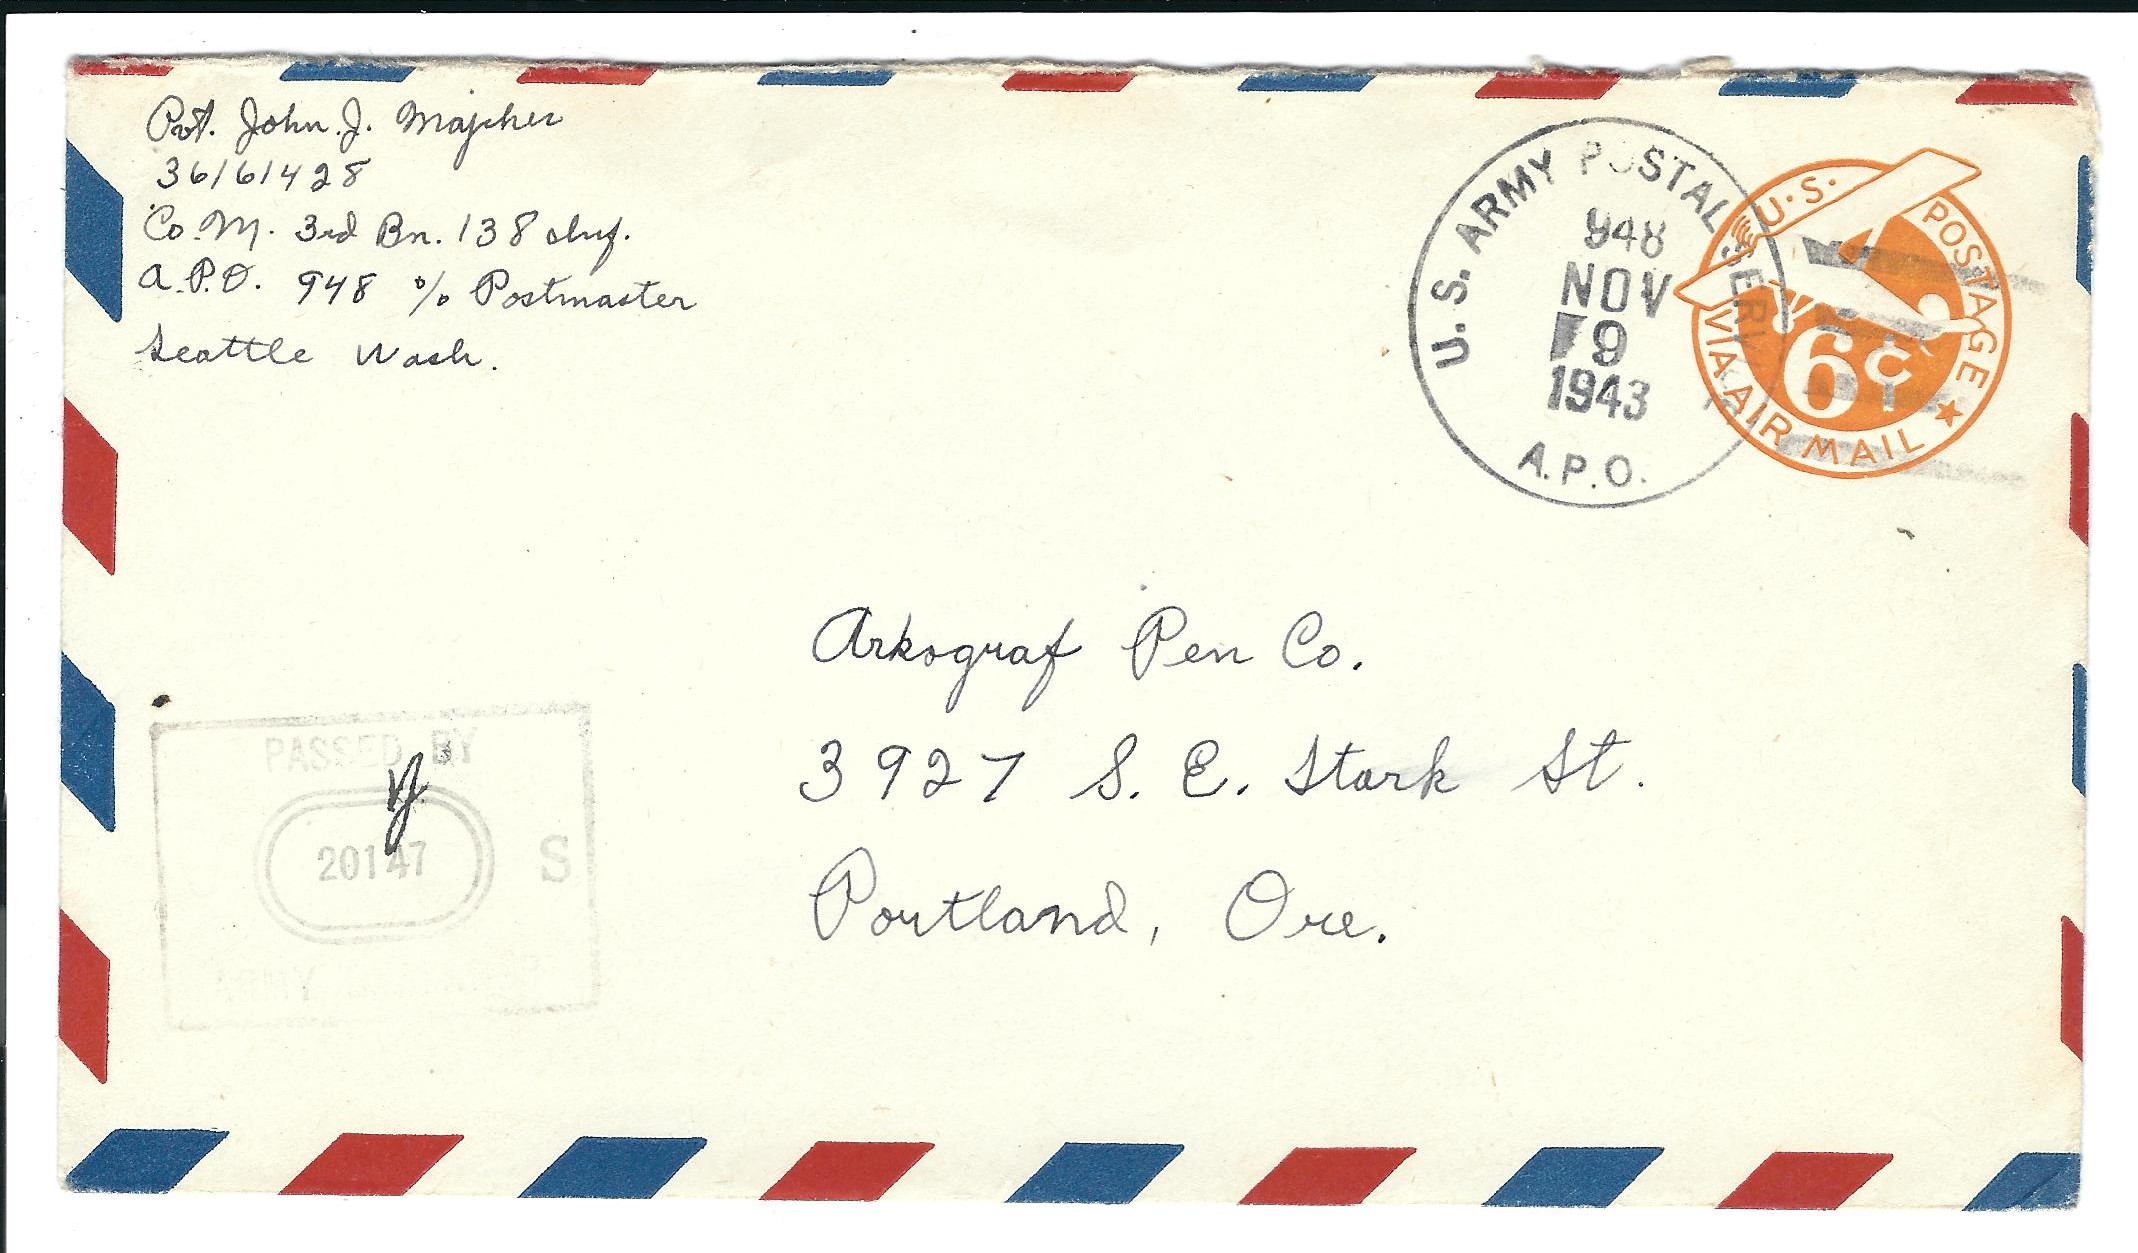 Pvt. John. J. Majcher
36161428
Co. M. 3rd Bn. 138 Inf.
A.P.O. 948 % Postmaster
Seattle Wash.
U.S. ARMY POSTAL SERV
948
NOV
9
1943
A.P.O.
U.S. POSTAGE
6¢
VIA AIR MAIL
Arkograf Pen Co.
3927 S. E. Stark St.
Portland, Ore.
PASSED BY
20147
S
ARMY